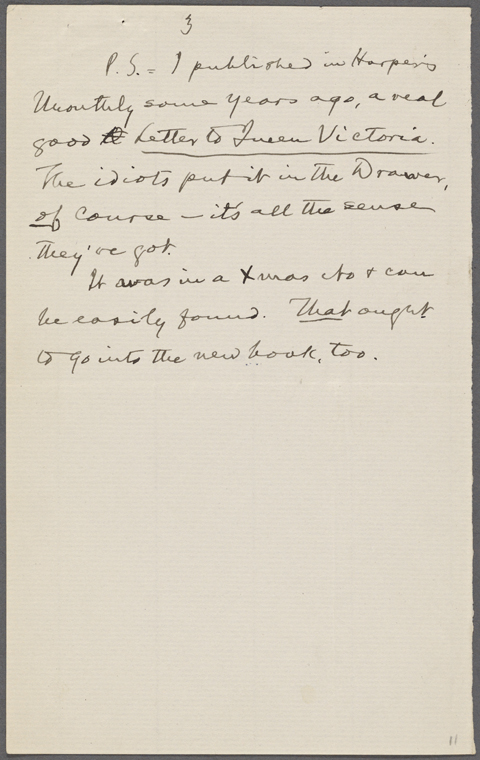 3
P.S. = I published in Harper's
Monthly some years ago, a real
good Letter to Queen Victoria.
The idiots put it in the Drawer,
of course — it's all the sense
they've got.
It was in a Xmas No & can
be easily found. That ought
to go into the new book, too.
11